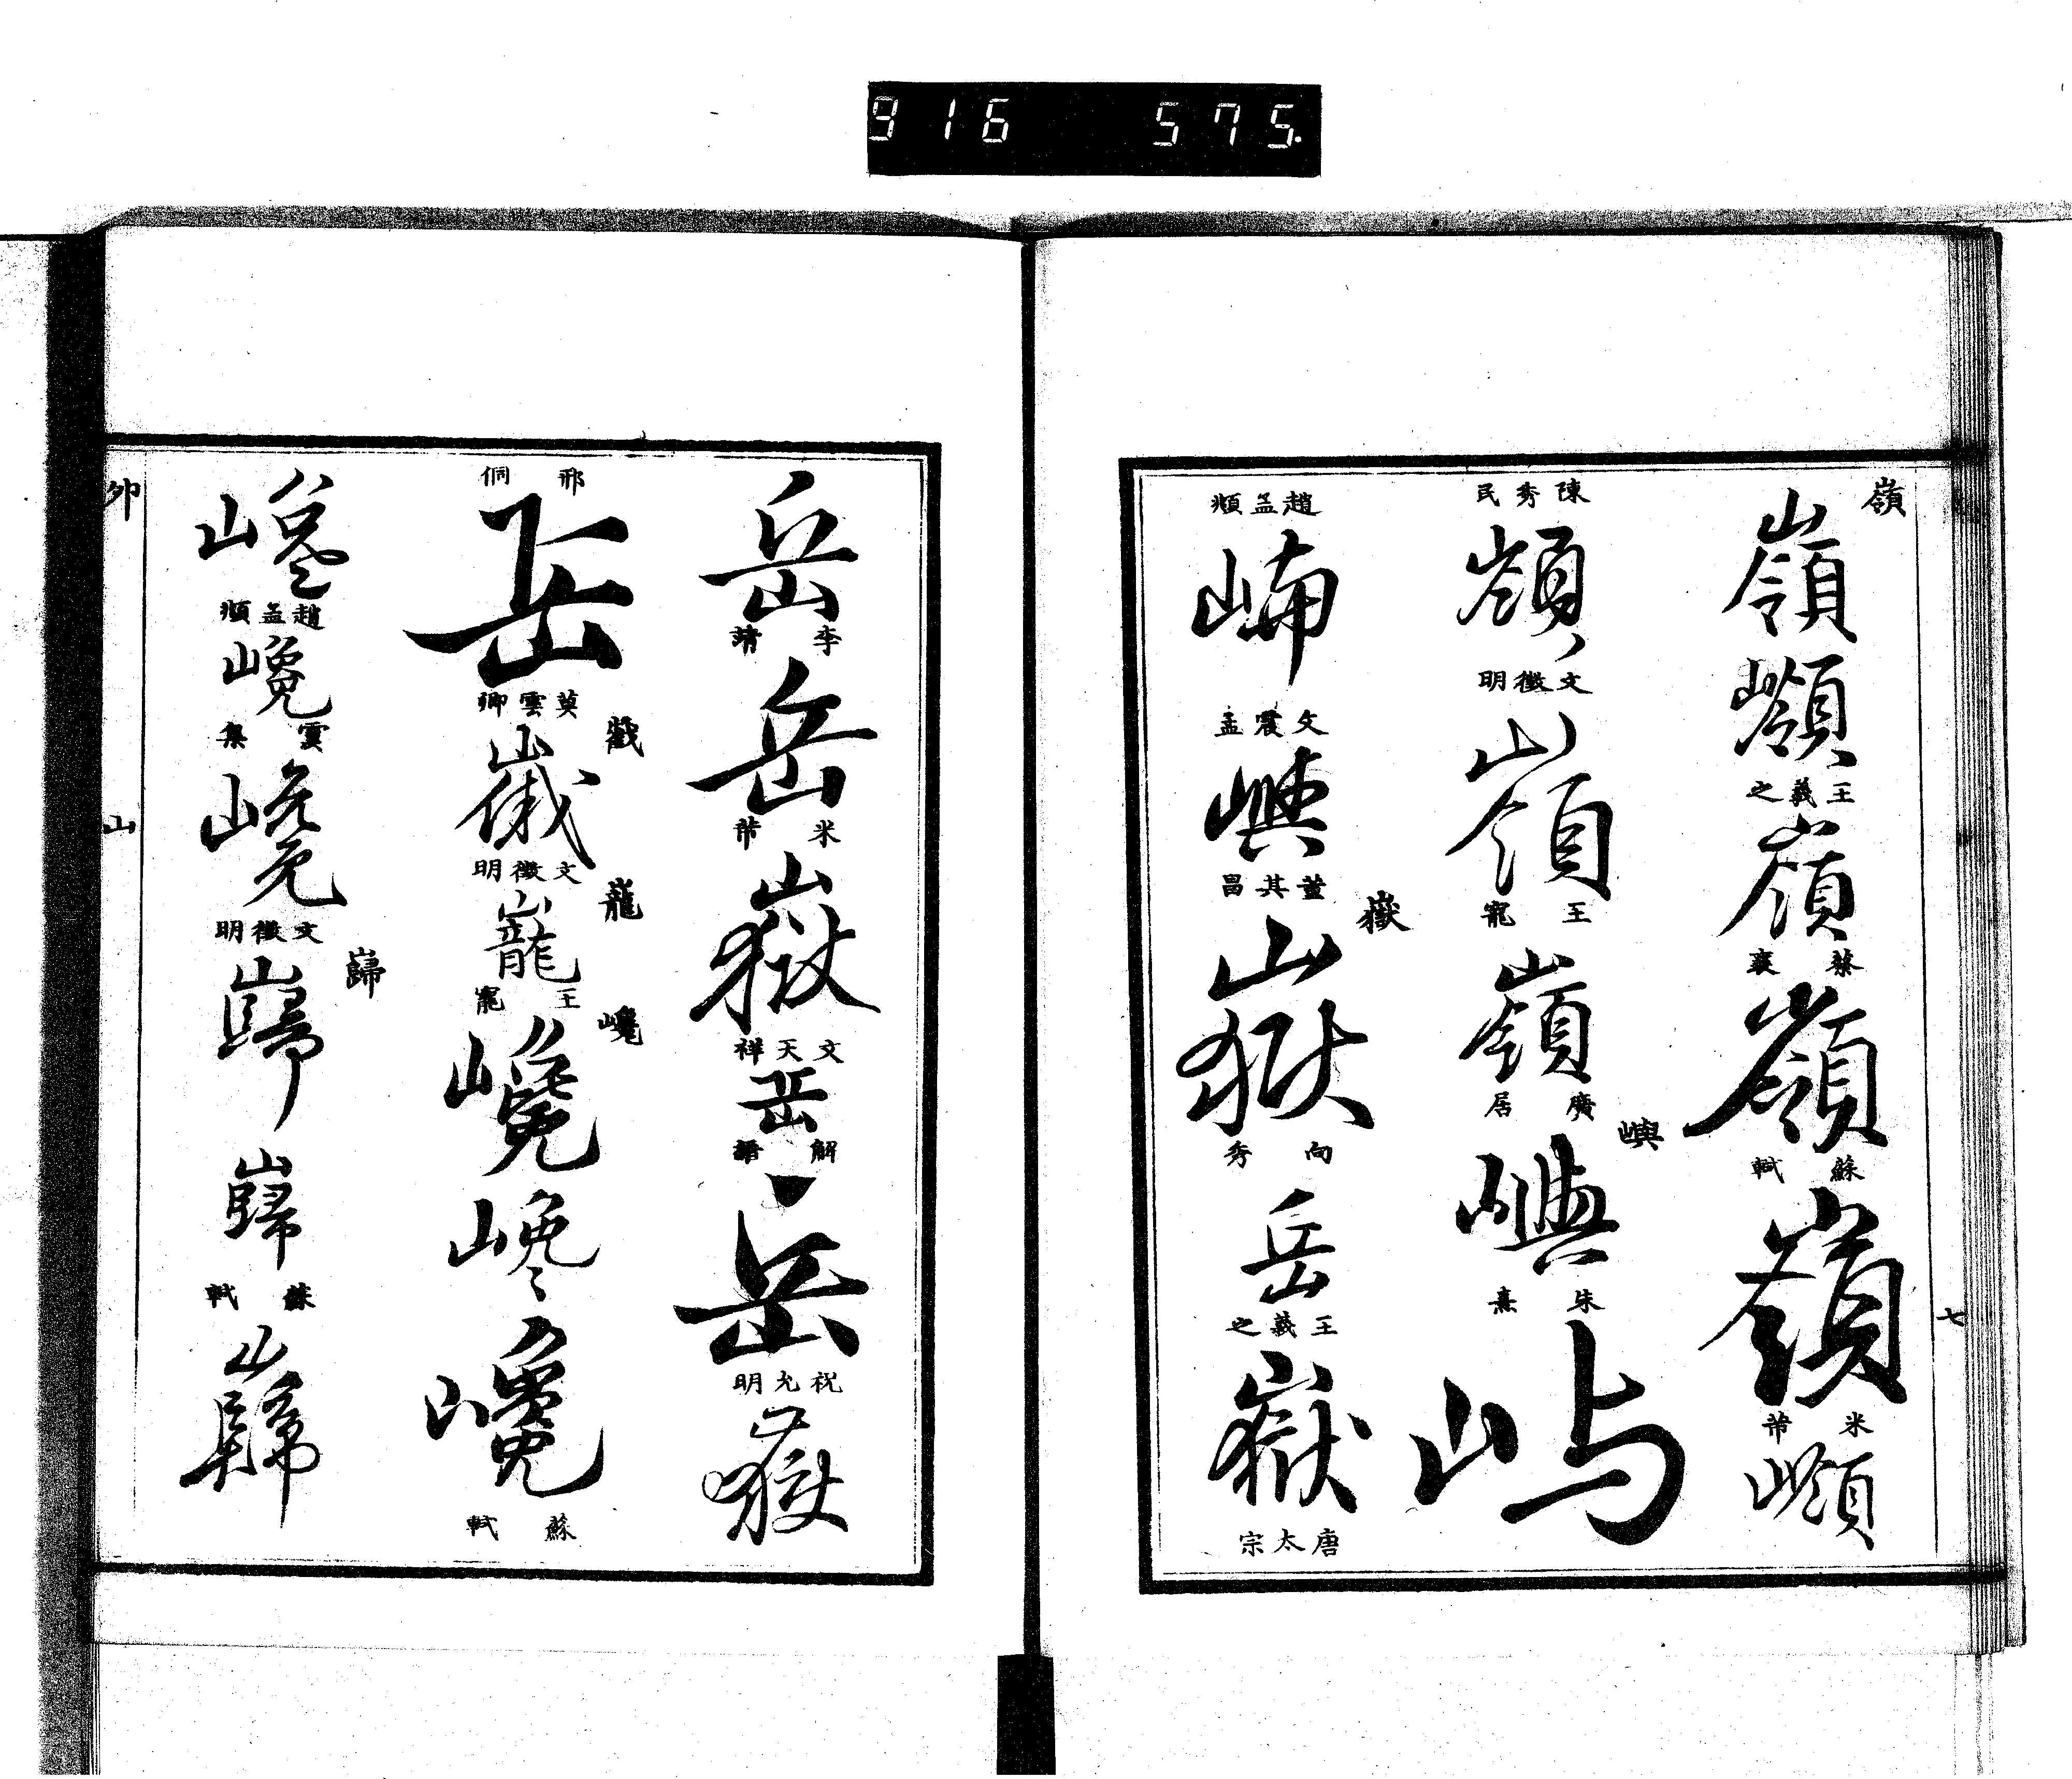 916 575.
嶺
嶺
嶺
王羲之
嶺
蔡襄
嶺
蘇軾
嶺
米芾
嶺
七
陳秀民
嶺
文徵明
嶺
王寵
嶺
廣居
嶼
嶼
朱熹
屿
趙孟頫
文震孟
嶼
董其昌
嶽
嶽
向秀
岳
王羲之
嶽
唐太宗
岳
李靖
岳
米芾
嶽
文天祥
岳
解縉
岳
祝允明
嶽
邢侗
岳
莫雲卿
文徵明
巃
王寵
巉
巉
巉
巉
蘇軾
巉
趙孟頫
巉
雲集
巉
文徵明
巋
巋
巋
蘇軾
巋
卯
山